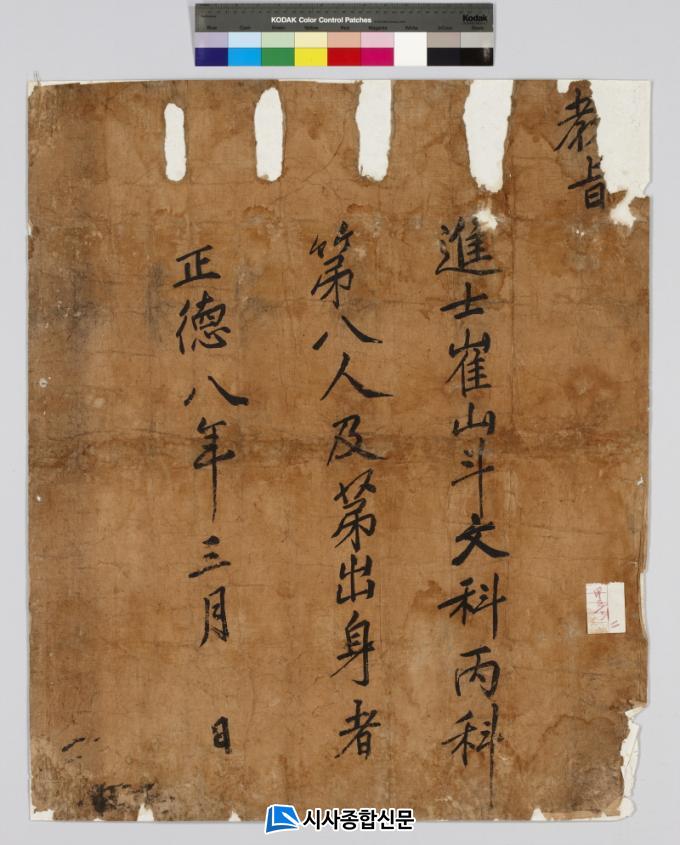 KODAK Color Control Patches
Kodak
Blue Cyan Green Yellow Red Magenta White 3/Color Black
敎旨
進士崔山斗文科丙科
第八人及第出身者
正德八年三月 日
시사종합신문